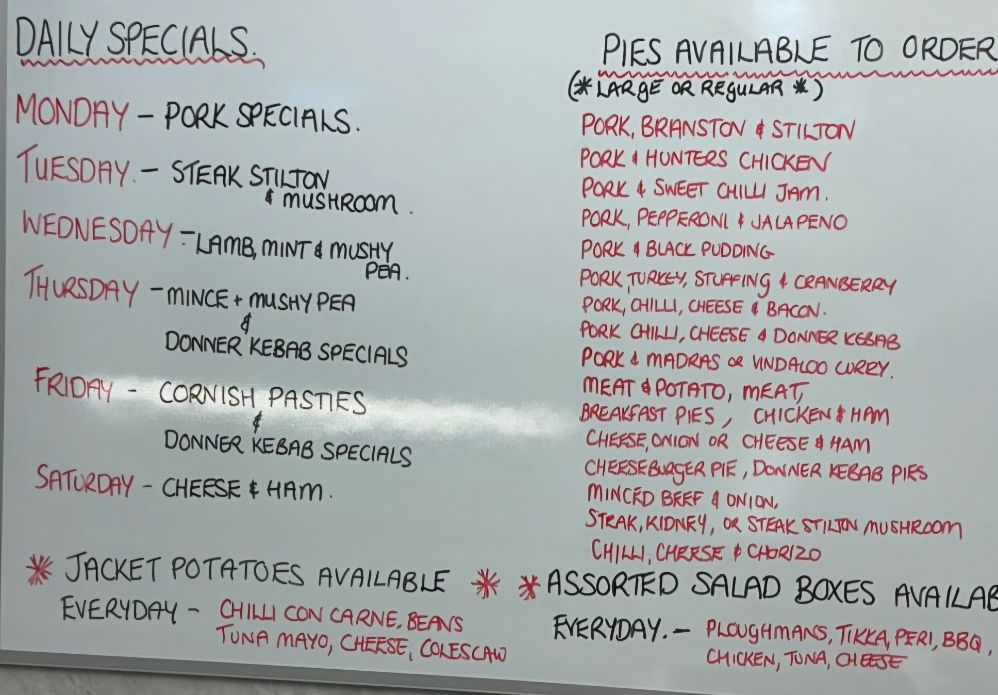 DAILY SPECIALS.
MONDAY - PORK SPECIALS.
TUESDAY. - STEAK STILTON
& MUSHROOM.
WEDNESDAY - LAMB, MINT & MUSHY
PEA.
THURSDAY - MINCE + MUSHY PEA
&
DONNER KEBAB SPECIALS
FRIDAY - CORNISH PASTIES
&
DONNER KEBAB SPECIALS
SATURDAY - CHEESE & HAM.
PIES AVAILABLE TO ORDER
(* LARGE OR REGULAR *)
PORK, BRANSTON & STILTON
PORK & HUNTERS CHICKEN
PORK & SWEET CHILLI JAM.
PORK, PEPPERONI & JALAPENO
PORK & BLACK PUDDING
PORK, TURKEY, STUFFING & CRANBERRY
PORK, CHILLI, CHEESE & BACON.
PORK CHILLI, CHEESE & DONNER KEBAB
PORK & MADRAS OR VINDALOO CURRY.
MEAT & POTATO, MEAT,
BREAKFAST PIES, CHICKEN & HAM
CHEESE, ONION OR CHEESE & HAM
CHEESEBURGER PIE, DONNER KEBAB PIES
MINCED BEEF & ONION,
STEAK, KIDNEY, OR STEAK STILTON MUSHROOM
CHILLI, CHEESE & CHORIZO
* JACKET POTATOES AVAILABLE *
EVERYDAY - CHILLI CON CARNE, BEANS
TUNA MAYO, CHEESE, COLESCAW
* ASSORTED SALAD BOXES AVAILAB
EVERYDAY. - PLOUGHMANS, TIKKA, PERI, BBQ,
CHICKEN, TUNA, CHEESE